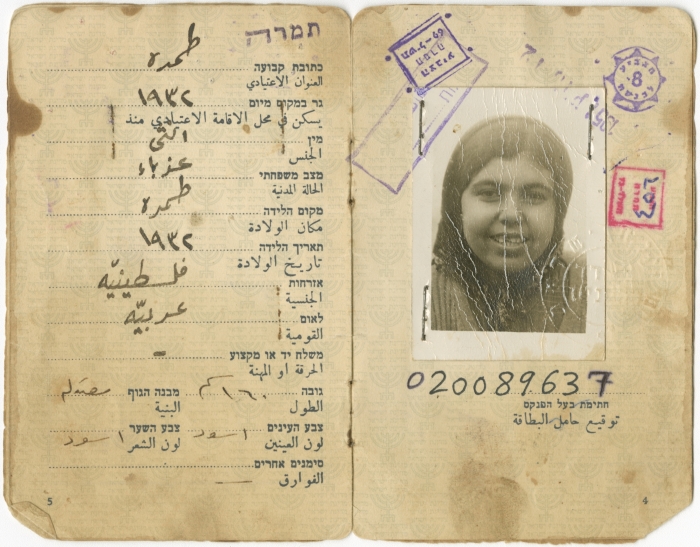 תמרה
כתובת קבועה طمره
العنوان الاعتيادي
גר במקום מיום ١٩٣٢
يسكن في محل الاقامة الاعتيادي منذ
מין انثى
الجنس
מצב משפחתי عزباء
الحالة المدنية
מקום הלידה طمره
مكان الولادة
תאריך הלידה ١٩٣٢
تاريخ الولادة
אזרחות فلسطينيّه
الجنسية
לאום عربيّه
القومية
משלח יד או מקצוע -
الحرفة او المهنة
גובה ١٦٠ كم מבנה הגוף معتدله
الطول البنية
צבע העינים اسود צבע השער اسود
لون العينين لون الشعر
סימנים אחרים
الفوارق
5
8
020089637
חתימת בעל הפנקס
توقيع حامل البطاقة
4